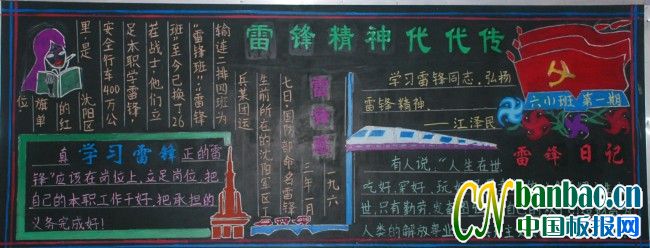 雷锋精神代代传
学习雷锋同志，弘扬
雷锋精神
——江泽民
六小班 第一期
雷锋日记
有人说，“人生在世，
吃好，穿好，玩
世，只有勤劳，发奋图
人类的解放事业
雷锋班
一九六
三年一月
七日，国防部命名雷锋
生前所在的沈阳军区工
兵某团运
输连二排四班为
“雷锋班”。“雷锋
班”至今已换了26
在战士，他们立
足本职学雷锋
安全行车400万公
里，是 沈阳区
的红
旗单
位.
学习雷锋
真 正的雷
锋“应该在岗位上，立足岗位，把
自己的本职工作干好，把承担的
义务完成好！
CNbanbao.cn
中国板报网